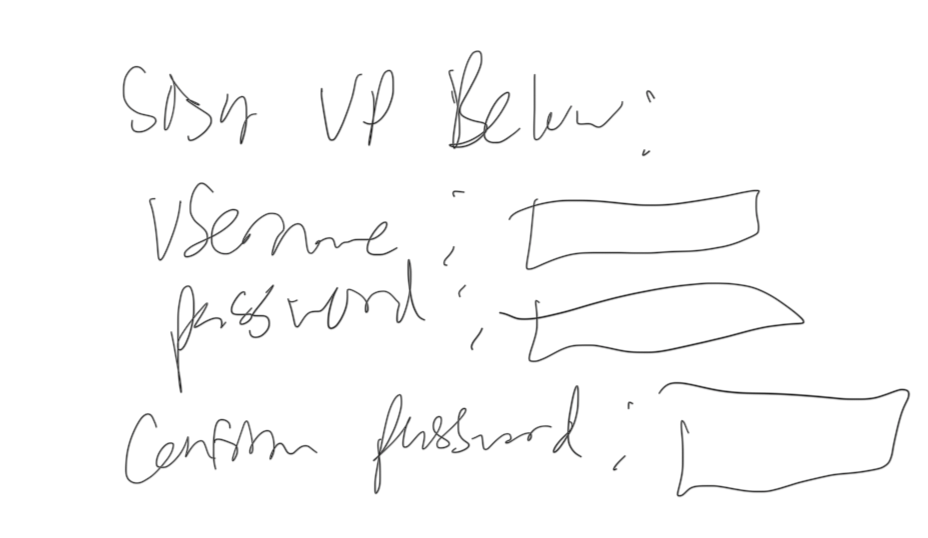 Sign UP Below:
Username:
password:
Confirm password: